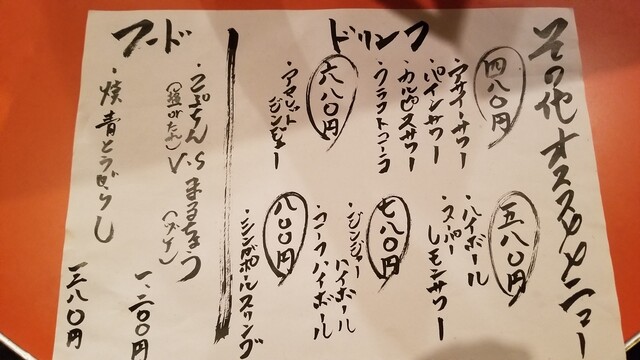 その他オススメメニュー
ドリンク
四八〇円
・アサイーサワー
・パインサワー
・カルピスサワー
・ブラックニッカ
五八〇円
・ハイボール
・スーパーレモンサワー
六八〇円
・アマレットジンジャー
七八〇円
・ジンジャーハイボール
・コークハイボール
八〇〇円
・シンガポールスリング
フード
・こぶちゃん V.S まるちょう
(塩orたれ)
一、二〇〇円
・焼青とうがらし